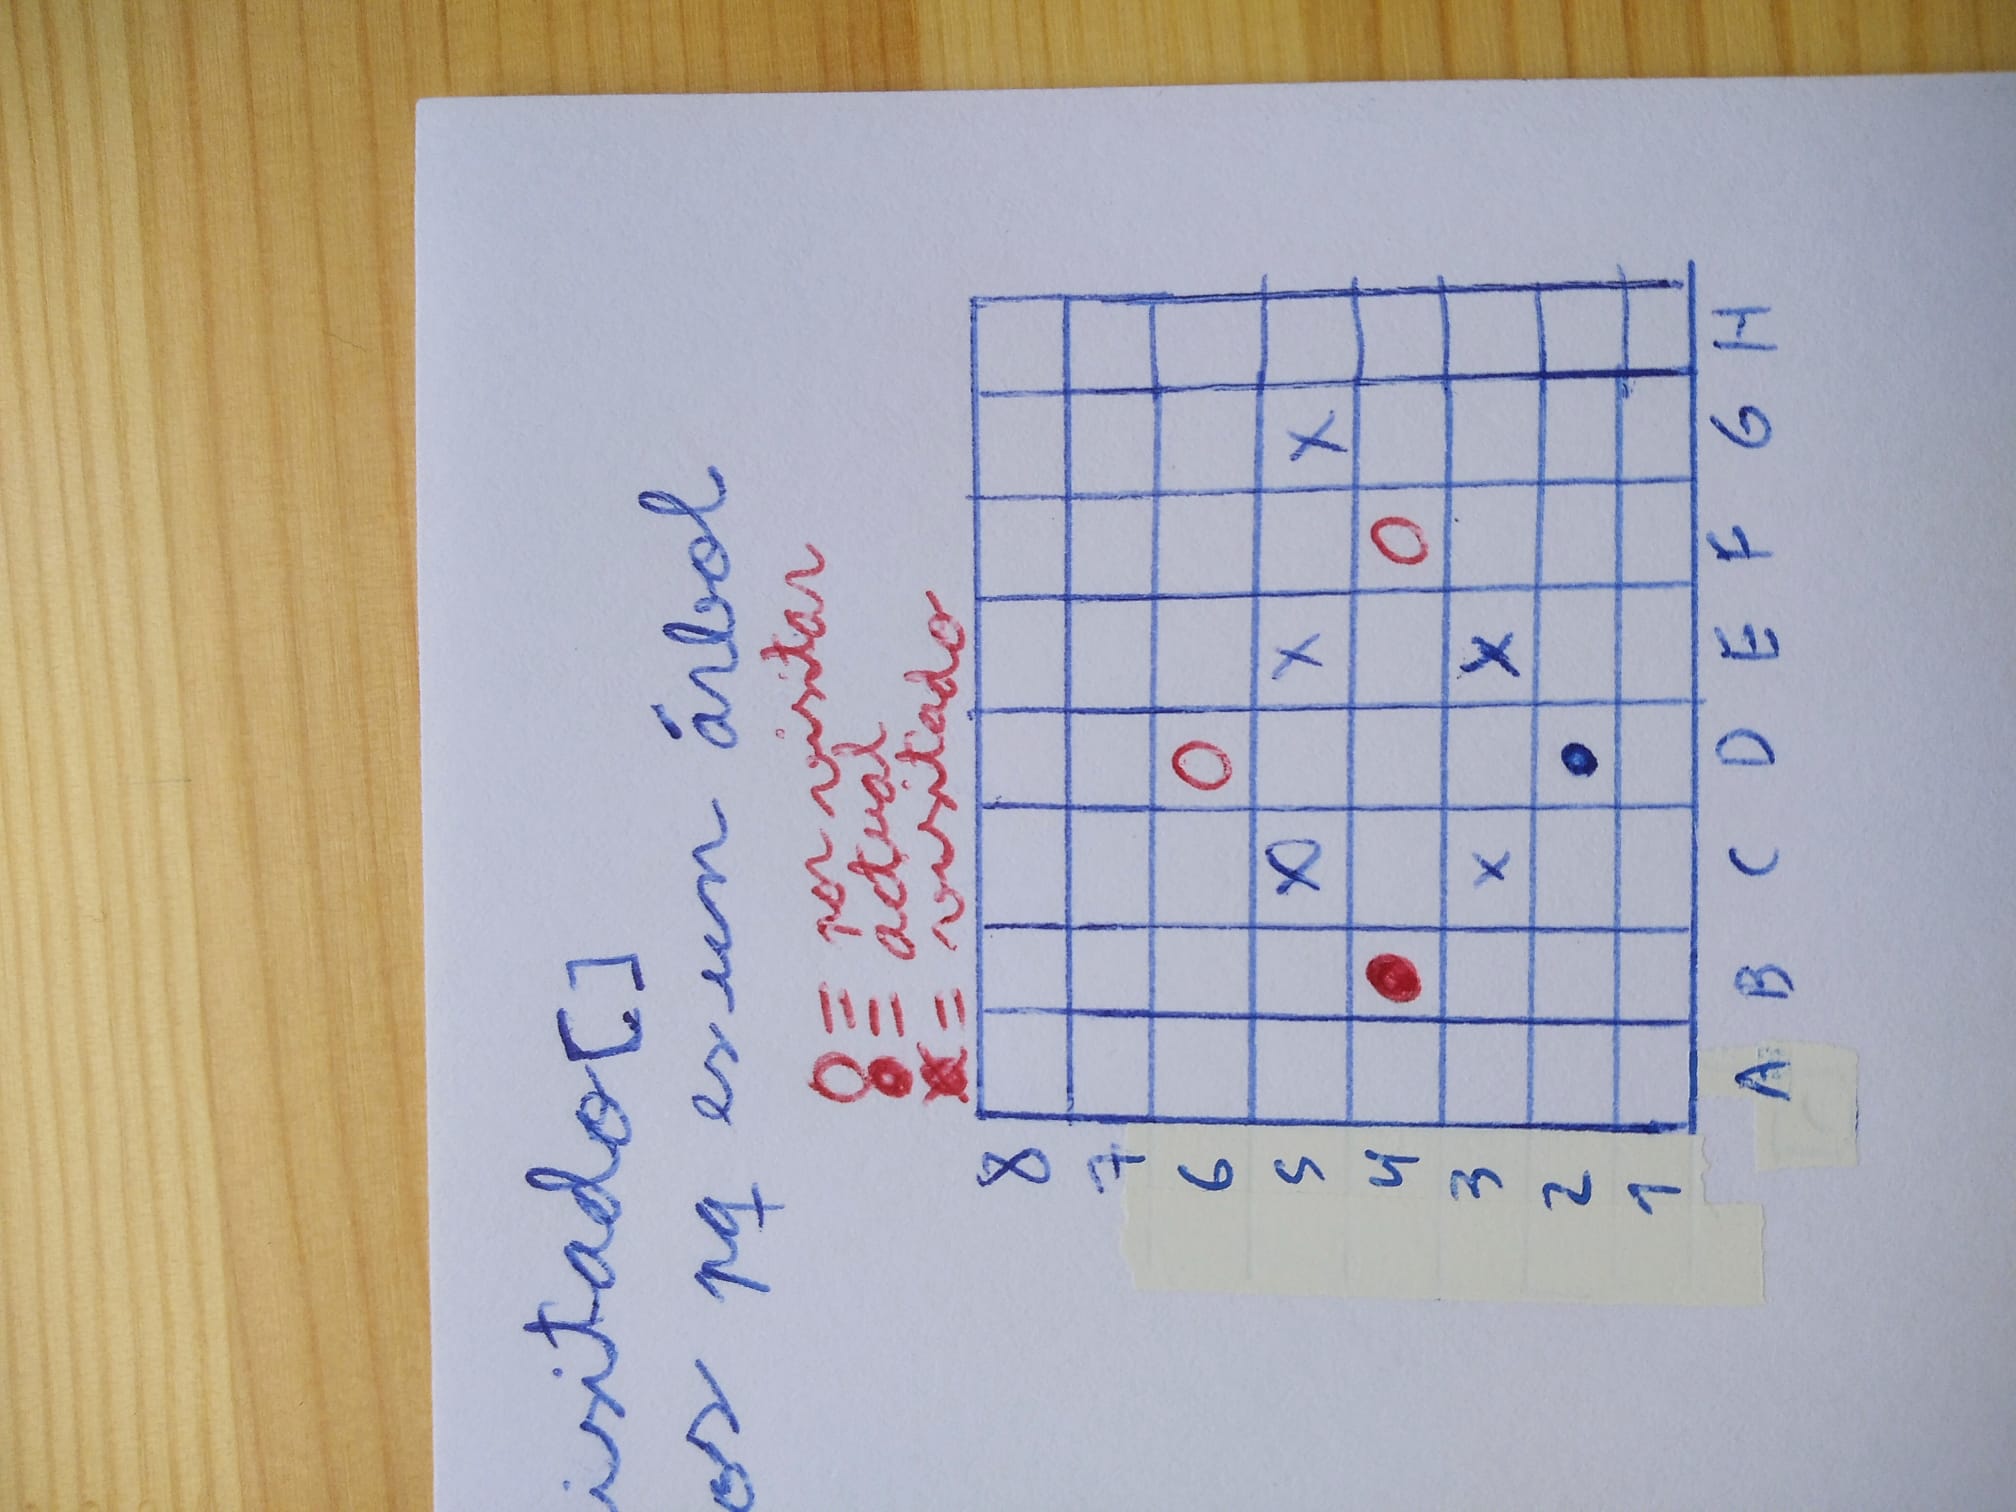 isitado[]
os pq es un árbol
O = por visitar
● = actual
X = visitado
8
7
6 O
5 X X X
4 ● O
3 X X
2 ●
1
A B C D E F G H